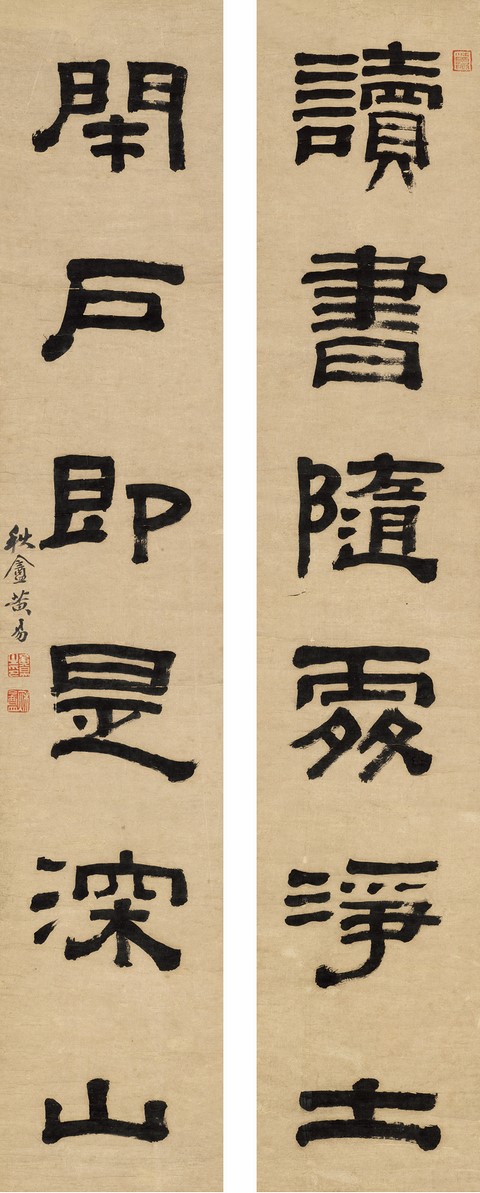 讀書隨處淨土
閉戶即是深山
秋盦黃易